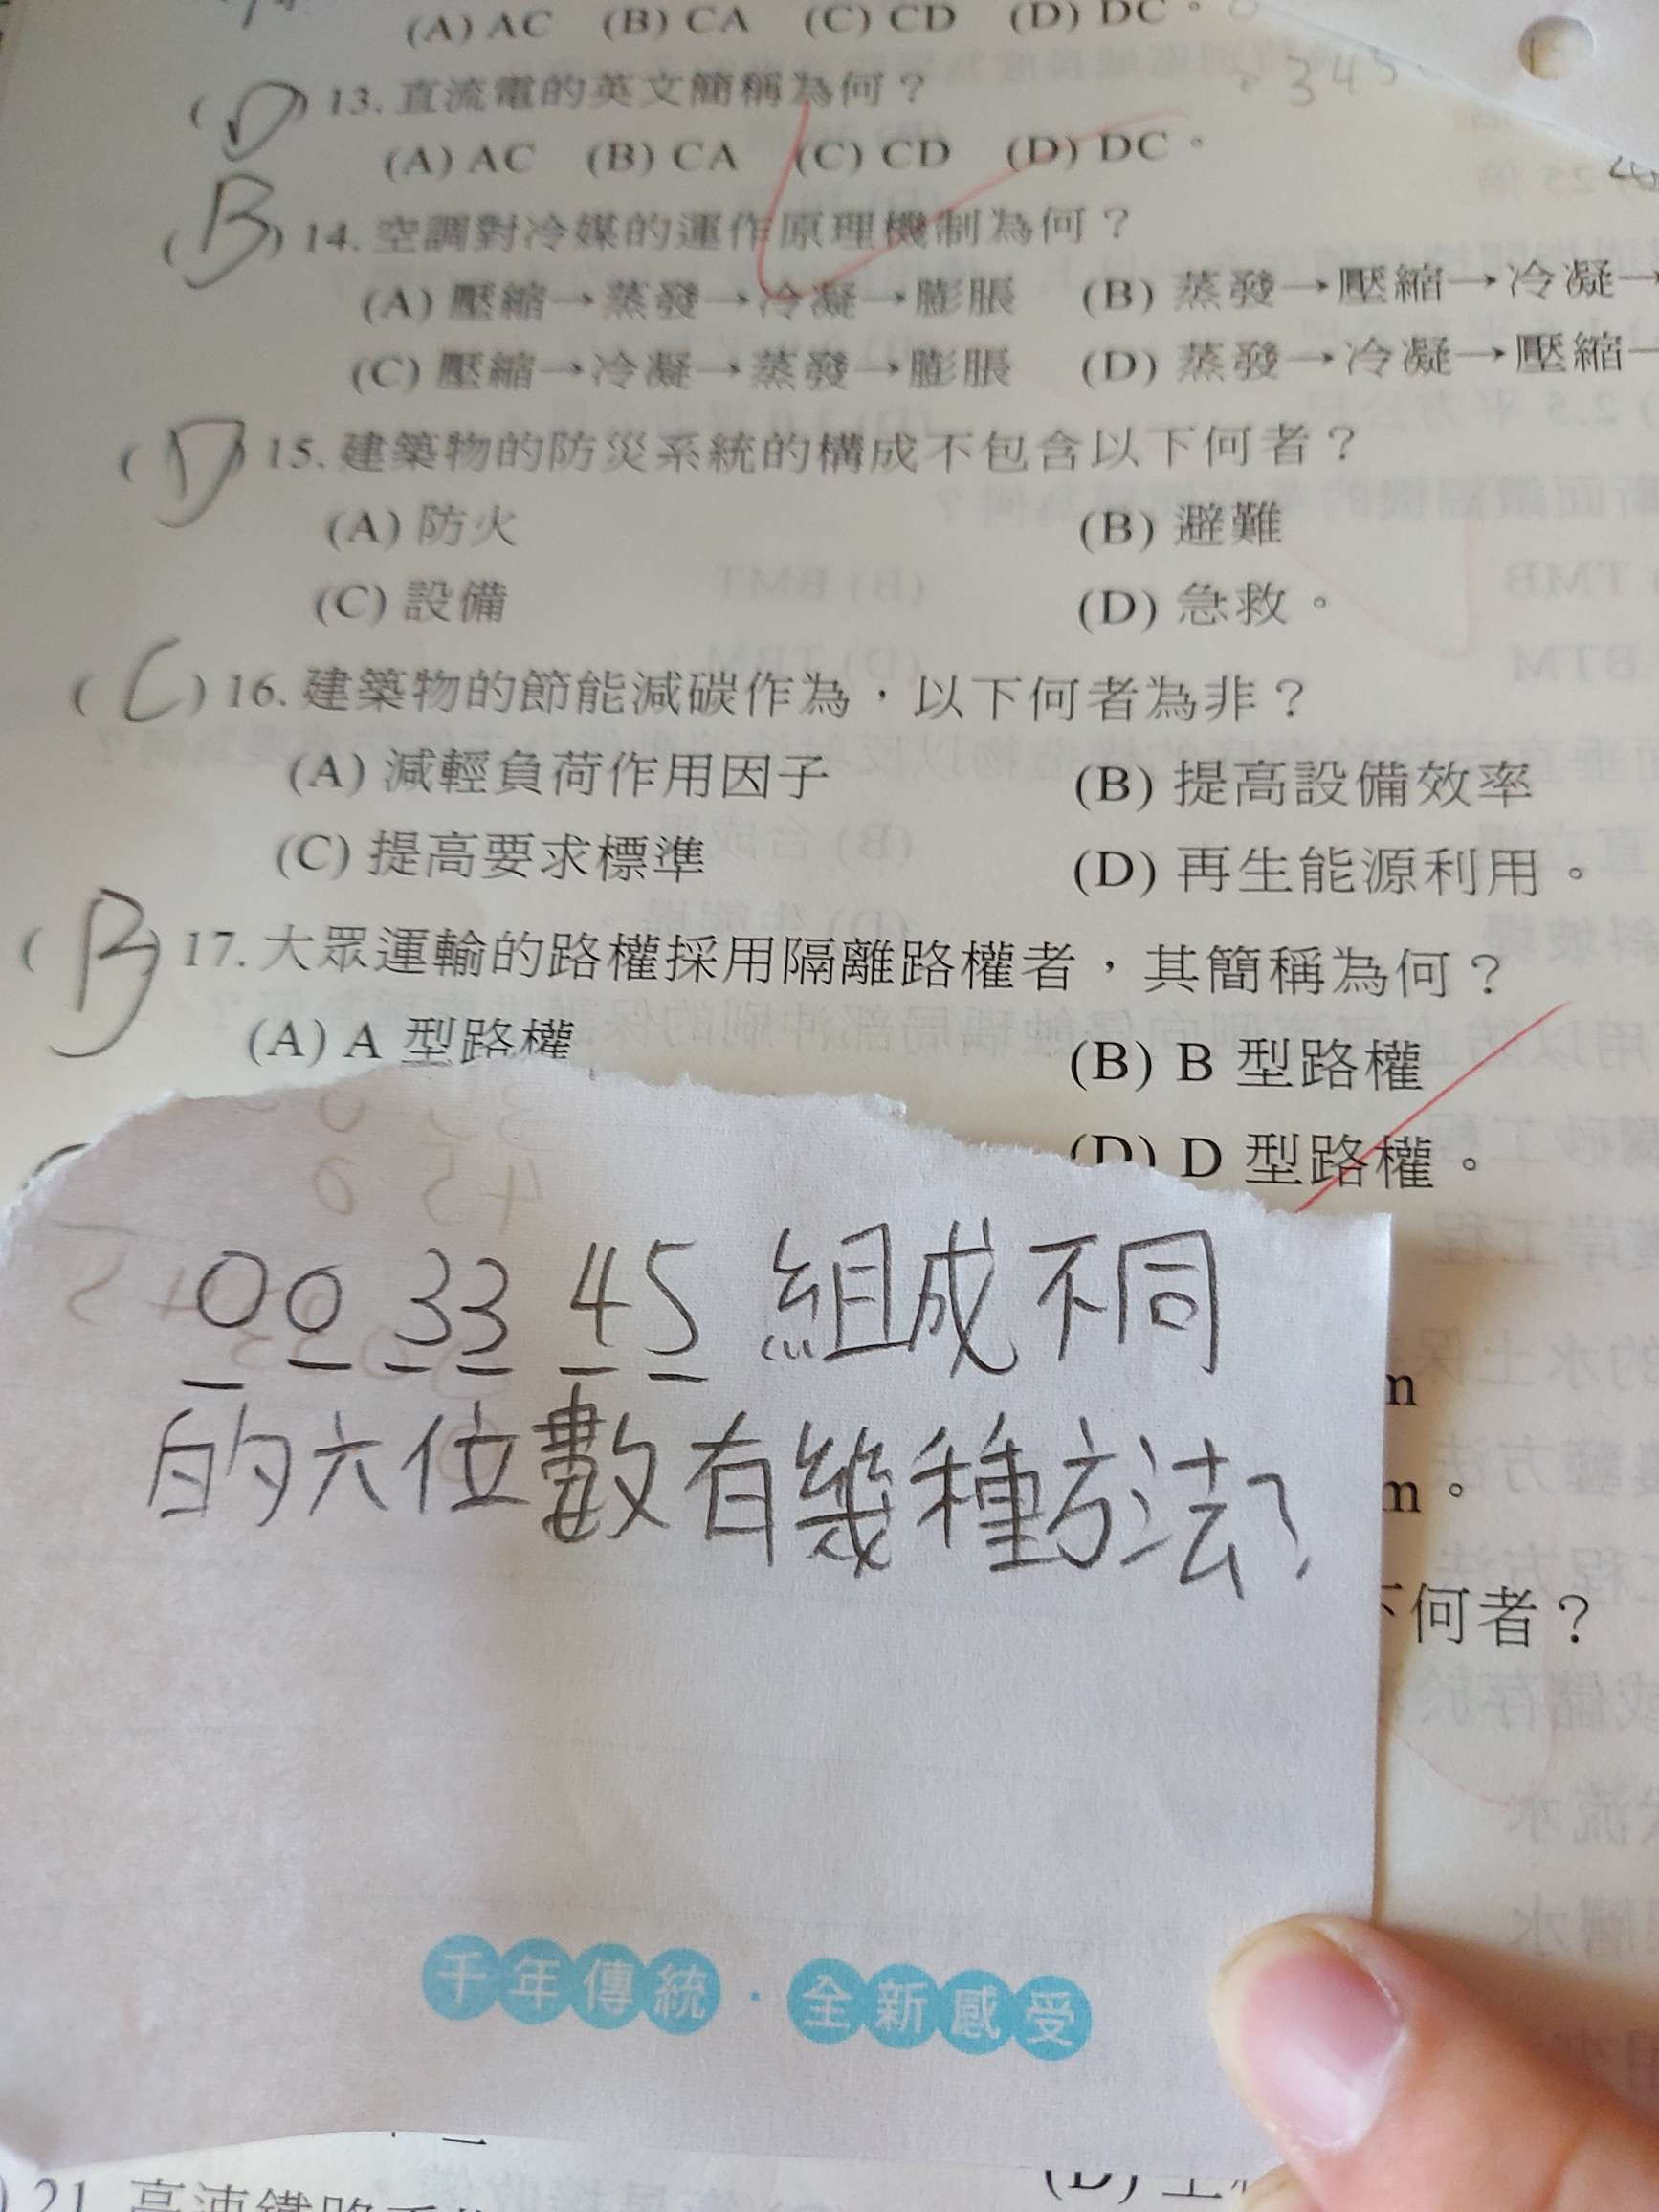 (A) AC (B) CA (C) CD (D) DC。
(D) 13. 直流電的英文簡稱為何？
(A) AC (B) CA (C) CD (D) DC。
(B) 14. 空調對冷媒的運作原理機制為何？
(A) 壓縮→蒸發→冷凝→膨脹 (B) 蒸發→壓縮→冷凝→
(C) 壓縮→冷凝→蒸發→膨脹 (D) 蒸發→冷凝→壓縮→
(D) 15. 建築物的防災系統的構成不包含以下何者？
(A) 防火 (B) 避難
(C) 設備 (D) 急救。
(C) 16. 建築物的節能減碳作為，以下何者為非？
(A) 減輕負荷作用因子 (B) 提高設備效率
(C) 提高要求標準 (D) 再生能源利用。
(B) 17. 大眾運輸的路權採用隔離路權者，其簡稱為何？
(A) A 型路權 (B) B 型路權
(D) D 型路權。
00 33 45 組成不同
的六位數有幾種方法?
m
m。
下何者？
千年傳統·全新感受
21. 高速鐵路